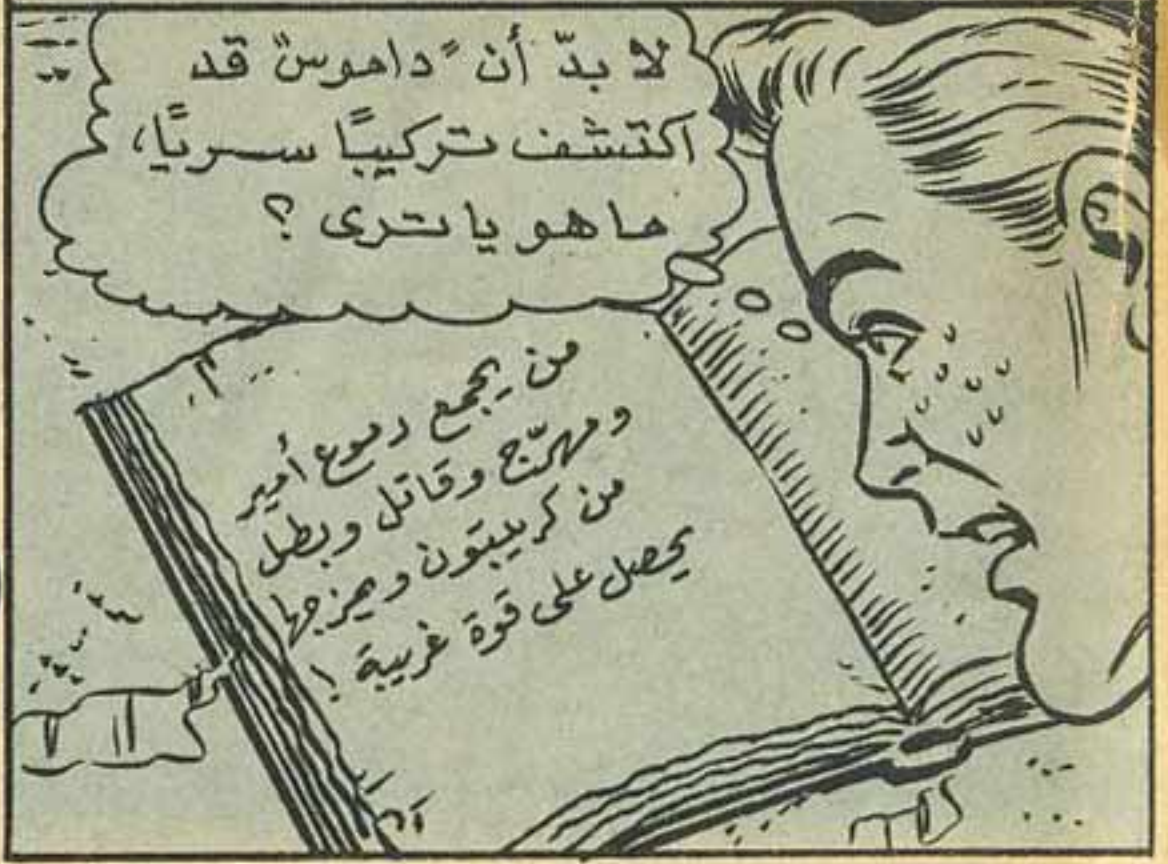 لا بدّ أن "داموس" قد
اكتشف تركيبًا سريًا،
ما هو يا ترى؟
من يجمع دموع أمير
ومهرّج وقاتل وبطل
من كريبتون ويمزجها
يحصل على قوة غريبة!